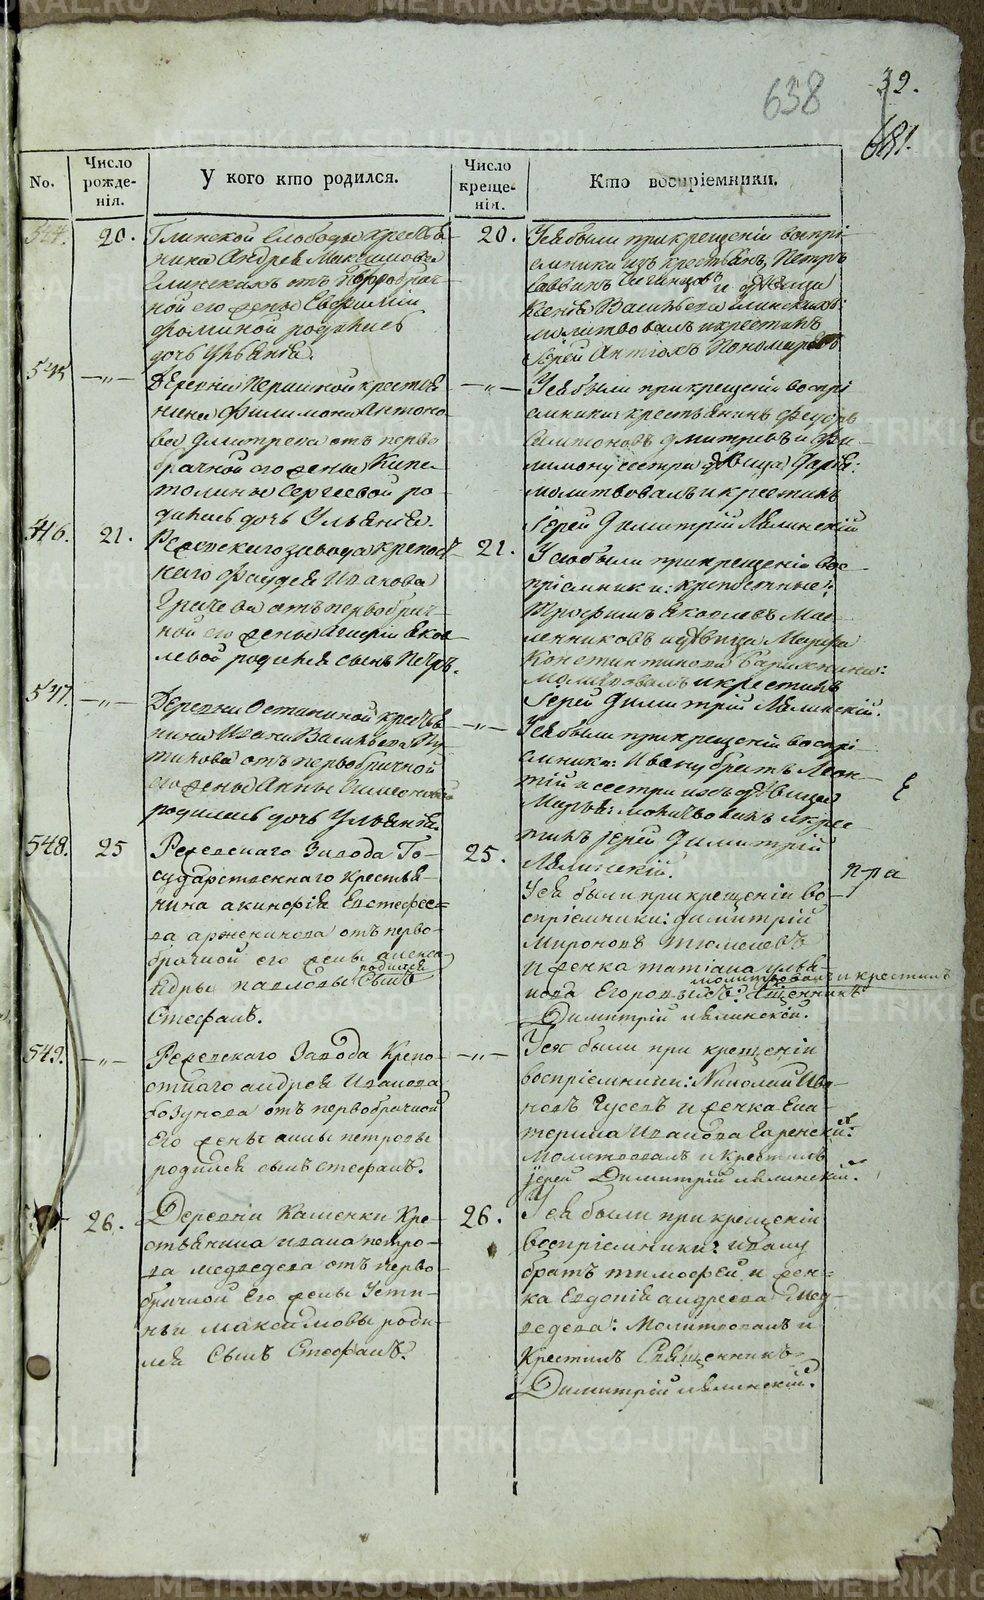 638
32.
681.
No.
Число рожде- нія.
У кого кто родился.
Число креще- нія.
Кто воспріемники.
544.
20.
Глинской Слободы крестья-
нина Андрея Максимова
Глинскихъ отъ первобрач-
ной его жены Евфиміи
Фоминой родилась
дочь Ульянія.
20.
У ея были при крещеніи воспрі-
емники изъ крестьянъ Петръ
Саввинъ и дѣвица
Ксенія Васильева Глинскихъ:
молитвовалъ и крестилъ
Іерей Антіохъ Пономаревъ
545
—„—
Деревни Першиной крестья-
нина Филимона Антоно-
ва Дмитрева отъ перво-
брачной его жены Капи-
толины Сергеевой ро-
дилась дочь Ульянія.
—„—
У ея были при крещеніи воспрі-
емники: крестьянинъ Федоръ
Дмитревъ и Фи-
лимону сестра дѣвица Дарія:
молитвовалъ и крестилъ
Іерей Димитрій Мялинскій
546.
21.
Режевскаго завода крепост-
наго Фаддея Иванова
Грачева отъ первобрач-
ной его жены Агафіи Яков-
левой родился сынъ Петръ.
21.
У его были при крещеніи вос-
пріемники: крепостные:
Трофимъ Яковлевъ Мас-
ленниковъ и дѣвица Марфа
Константинова
молитвовалъ и крестилъ
Іерей Димитрій Мялинскій.
547.
—„—
Деревни Останиной крестья-
нина Ивана Васильева
отъ первобрачной
его жены Анны Симеоновой
родилась дочь Ульянія.
—„—
У ея были при крещеніи воспрі-
емники: Ивану братъ Леон-
тій и сестра ихъ дѣвица
Марѳа: молитвовалъ и крес-
тилъ Іерей Димитрій
Мялинскій.
548.
25
Режевскаго Завода Го-
сударственнаго крестья-
нина Акинфія Евстафее-
ва Арженикова отъ перво-
брачной его жены Алекса-
ндры Павловы родился сынъ
Стефанъ.
25.
У ея были при крещеніи во-
спріемники: Димитрій
Мироновъ
и женка Татіана Улья-
нова молитвовалъ и крестилъ
Священникъ
Димитрій Мялинскій.
549.
—„—
Режевскаго Завода Крепо-
стнаго Андрея Иванова
Козунова отъ первобрачной
его жены Анны Петровы
родился сынъ Стефанъ.
—„—
У ея были при крещеніи
воспріемники: Николай Ива-
новъ Гусевъ и женка Ека-
терина Иванова
Молитвовалъ и крестилъ
Іерей Димитрій Мялинскій.
26.
Деревни Каменки Кре-
стьянина Ивана Петро-
ва Медведева отъ перво-
брачной его жены Усти-
ньи Максимовы роди-
лся сынъ Стефанъ.
26.
У ея были при крещеніи
воспріемники: Ивану
братъ Тимофей и жен-
ка Евдокія Андреева Мед-
ведева: Молитвовалъ и
Крестилъ Священникъ
Димитрій Мялинскій.
METRIKI.GASO-URAL.RU